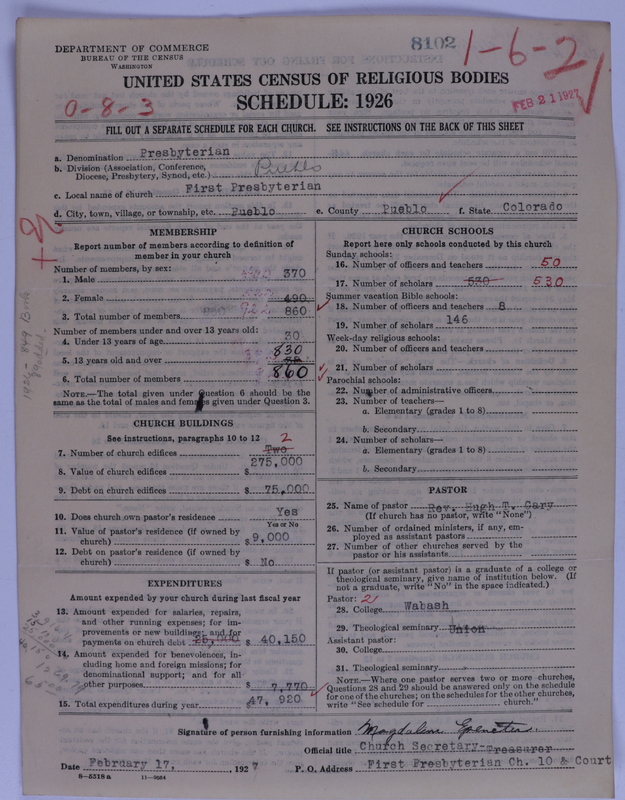 DEPARTMENT OF COMMERCE
BUREAU OF THE CENSUS
WASHINGTON
8102
1-6-2
UNITED STATES CENSUS OF RELIGIOUS BODIES
0-8-3
SCHEDULE: 1926
FEB 21 1927
FILL OUT A SEPARATE SCHEDULE FOR EACH CHURCH. SEE INSTRUCTIONS ON THE BACK OF THIS SHEET
a. Denomination Presbyterian
b. Division (Association, Conference,
Diocese, Presbytery, Synod, etc.) Pueblo
c. Local name of church First Presbyterian
d. City, town, village, or township, etc. Pueblo e. County Pueblo f. State Colorado
MEMBERSHIP
Report number of members according to definition of
member in your church
Number of members, by sex:
1. Male 370
2. Female 490
3. Total number of members 860
Number of members under and over 13 years old:
4. Under 13 years of age 30
5. 13 years old and over 830
6. Total number of members 860
NOTE.—The total given under Question 6 should be the
same as the total of males and females given under Question 3.
CHURCH BUILDINGS
See instructions, paragraphs 10 to 12
7. Number of church edifices Two 2
8. Value of church edifices $ 275,000
9. Debt on church edifices $ 75,000
10. Does church own pastor's residence Yes
Yes or No
11. Value of pastor's residence (if owned by
church) $ 9,000
12. Debt on pastor's residence (if owned by
church) $ No
EXPENDITURES
Amount expended by your church during last fiscal year
13. Amount expended for salaries, repairs,
and other running expenses; for im-
provements or new buildings; and for
payments on church debt 25,000 $ 40,150
14. Amount expended for benevolences, in-
cluding home and foreign missions; for
denominational support; and for all
other purposes $ 7,770
15. Total expenditures during year $ 47,920
CHURCH SCHOOLS
Report here only schools conducted by this church
Sunday schools:
16. Number of officers and teachers 50
17. Number of scholars 530 530
Summer vacation Bible schools:
18. Number of officers and teachers 8
19. Number of scholars 146
Week-day religious schools:
20. Number of officers and teachers
21. Number of scholars
Parochial schools:
22. Number of administrative officers
23. Number of teachers—
a. Elementary (grades 1 to 8)
b. Secondary
24. Number of scholars—
a. Elementary (grades 1 to 8)
b. Secondary
PASTOR
25. Name of pastor Rev. Hugh T. Cary
(If church has no pastor, write "None")
26. Number of ordained ministers, if any, em-
ployed as assistant pastors
27. Number of other churches served by the
pastor or his assistants
If pastor (or assistant pastor) is a graduate of a college or
theological seminary, give name of institution below. (If
not a graduate, write "No" in the space indicated.)
Pastor: 21
28. College Wabash
29. Theological seminary Union
Assistant pastor:
30. College
31. Theological seminary
NOTE.—Where one pastor serves two or more churches,
Questions 28 and 29 should be answered only on the schedule
for one of the churches; on the schedules for the other churches,
write "See schedule for church."
Signature of person furnishing information Magdaline
Official title Church Secretary-Treasurer
Date February 17, 1927 P. O. Address First Presbyterian Ch. 10 & Court
8-5518a 11-9084